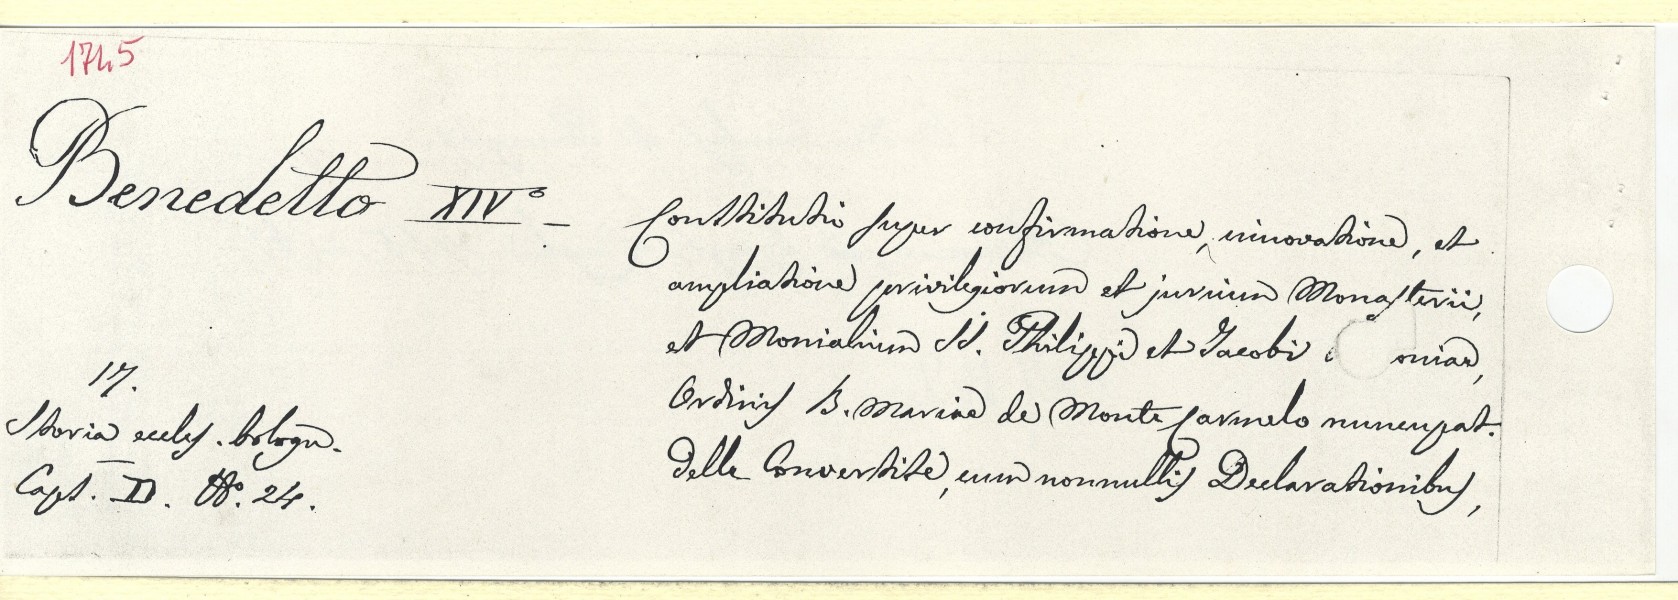 1745
Benedetto XIVº - Constitutio super confirmatione, innovatione, et
ampliatione privilegiorum et jurium Monasterii,
et Monialium SS. Philippi et Jacobi oniae,
Ordinis B. Mariae de Monte Carmelo nuncupat.
delle Convertite, cum nonnullis Declarationibus,
17.
Storia eccles. bologn.
Capt. II. Nº. 24.